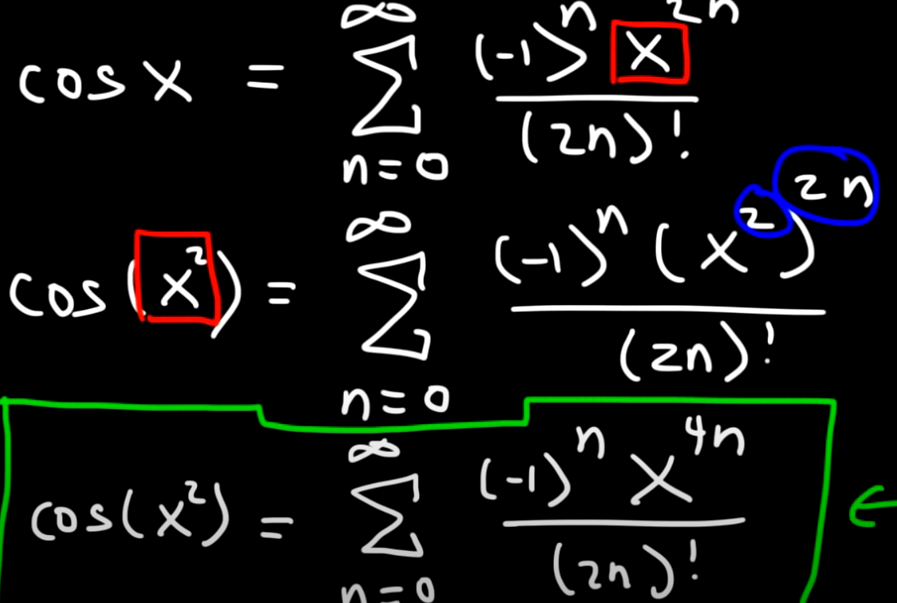 cos x = ∑_{n=0}^{∞} \frac{(-1)^n x^{2n}}{(2n)!}
cos(x²) = ∑_{n=0}^{∞} \frac{(-1)^n (x²)^{2n}}{(2n)!}
cos(x²) = ∑_{n=0}^{∞} \frac{(-1)^n x^{4n}}{(2n)!}